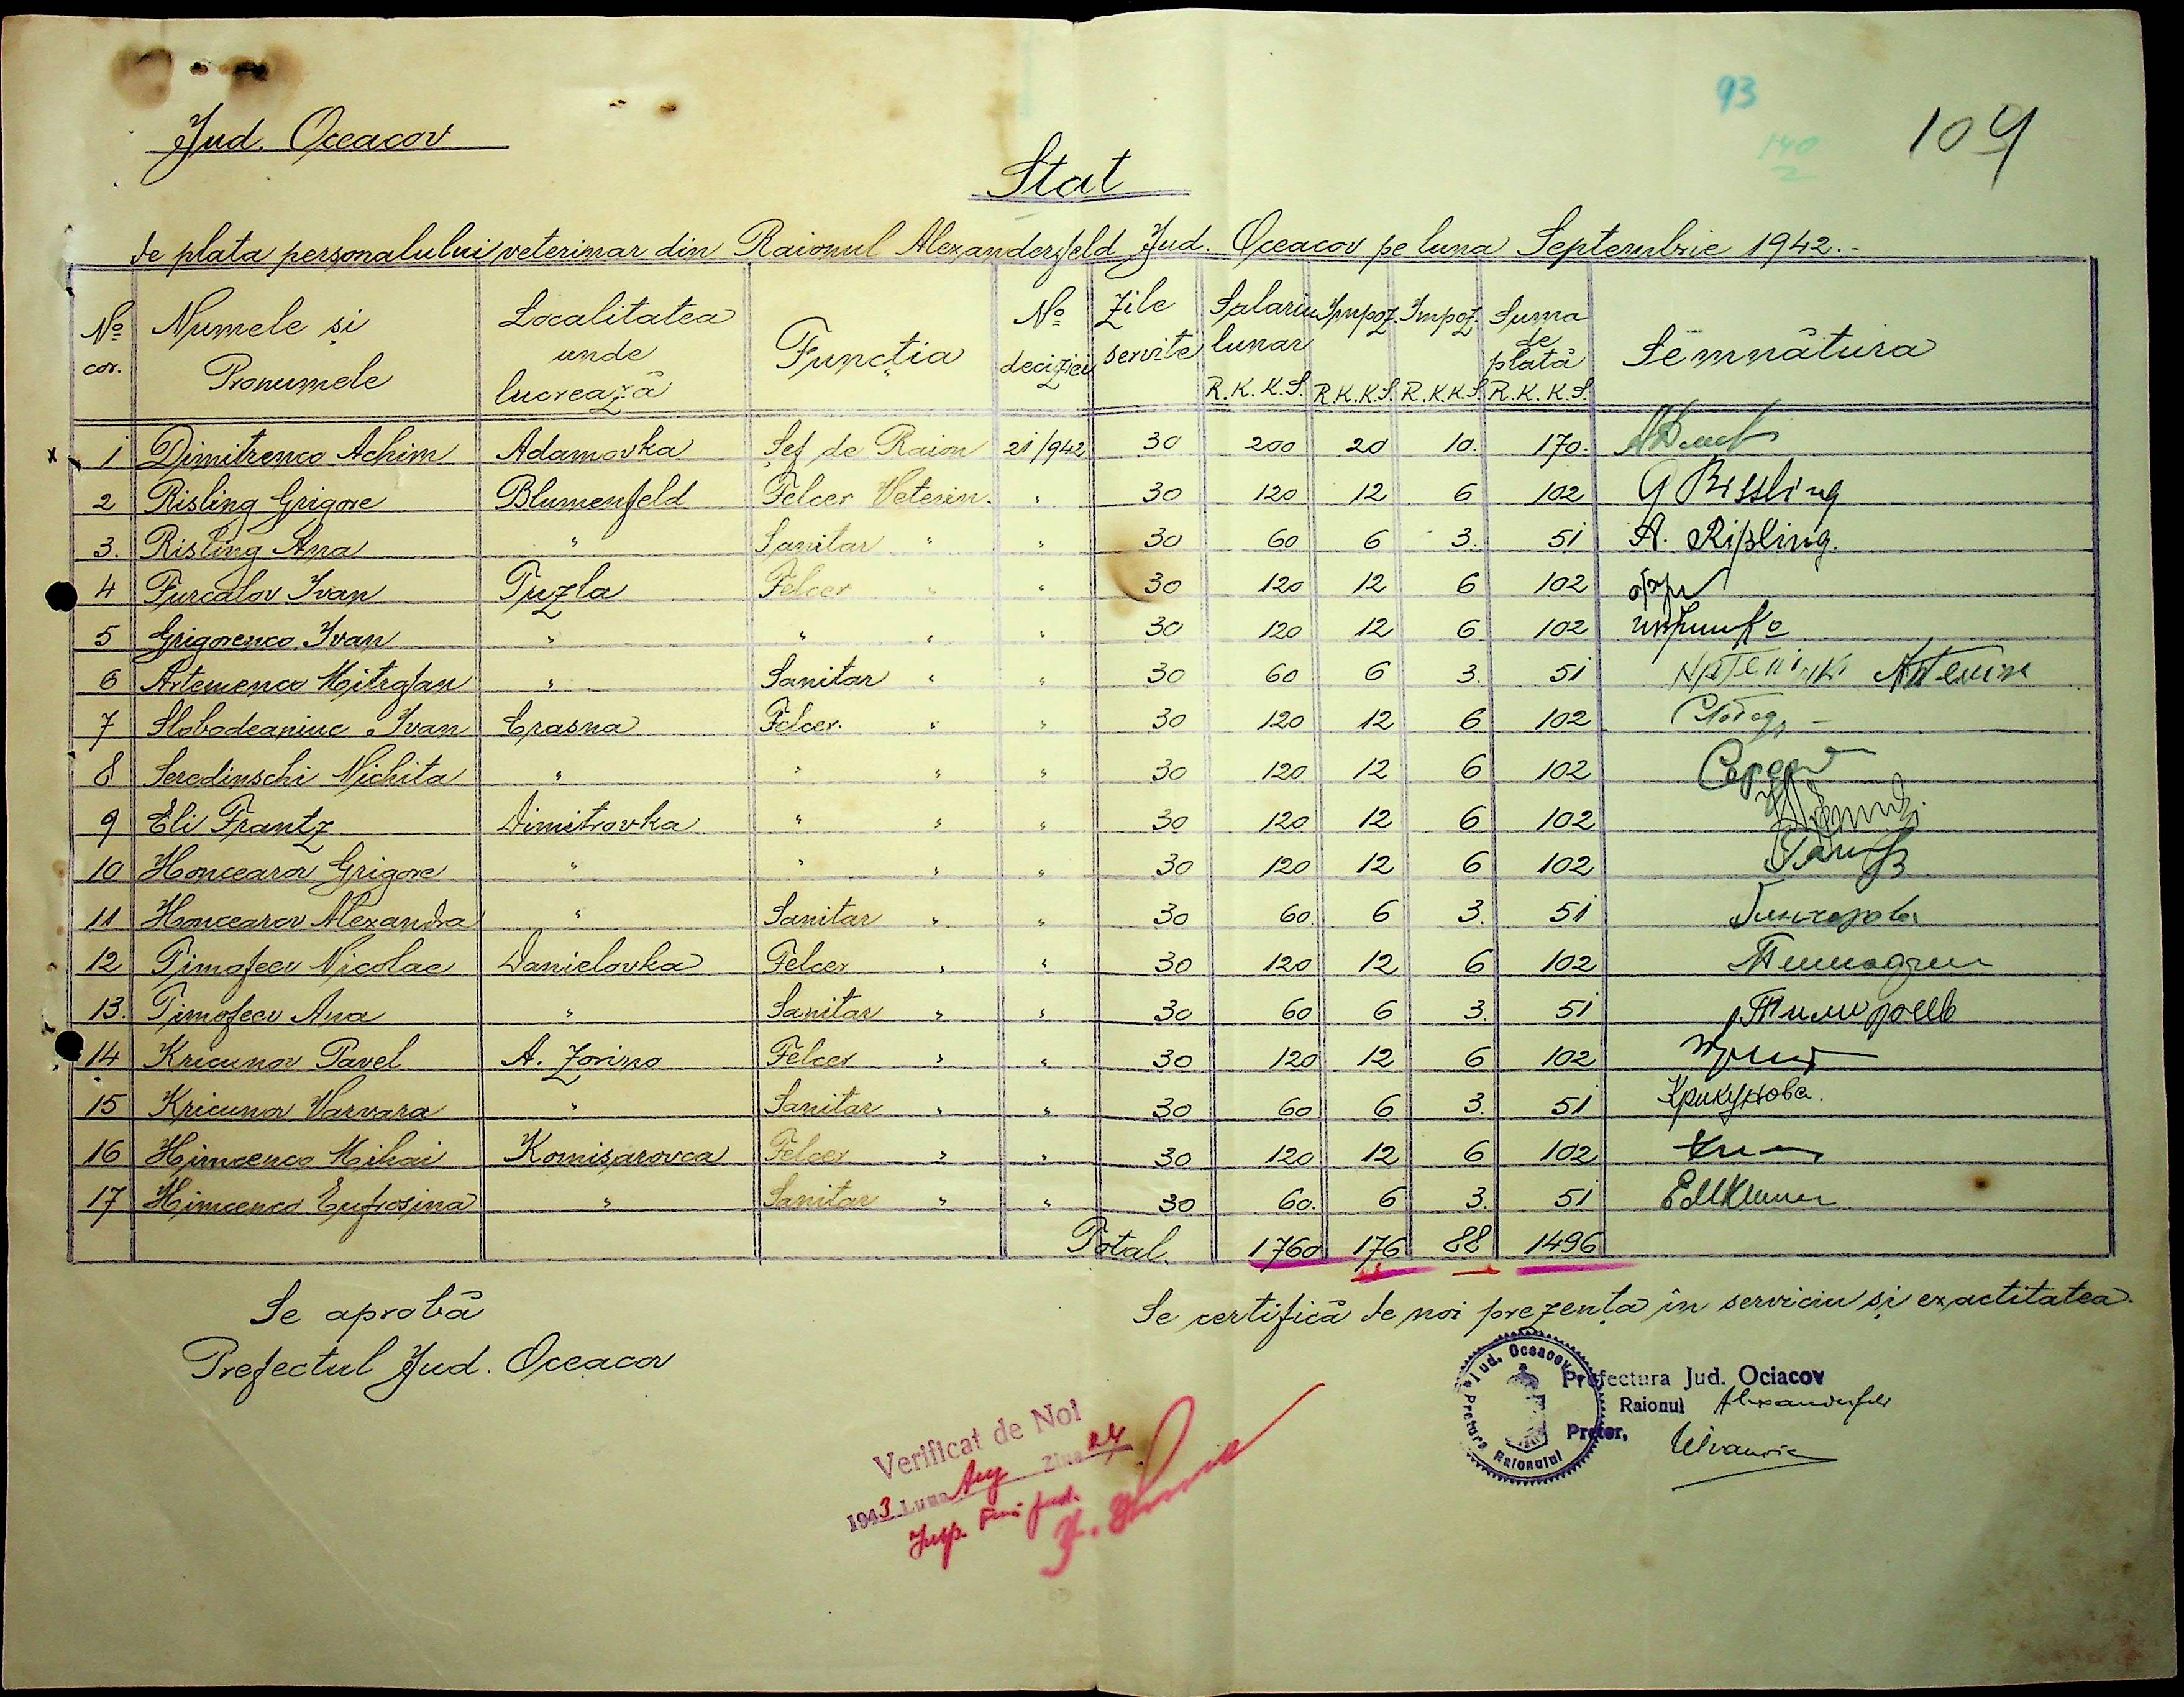 93
140
2
104
Jud. Oceacov
Stat
de plata personalului veterinar din Raionul Alexanderfeld Jud. Oceacov pe luna Septembrie 1942.-
No cor. Numele și Pronumele Localitatea unde lucrează Funcția No deciziei Zile servite Salariu lunar R.K.K.S. Impoz. R.K.K.S. Impoz. R.K.K.S. Suma de plată R.K.K.S. Semnătura
x 1 Dimitrenco Achim Adamovka Șef de Raion 21/942 30 200 20 10. 170.
2 Risling Grigore Blumenfeld Felcer Veterin. " 30 120 12 6 102 G Rissling
3. Risling Ana " Sanitar " " 30 60 6 3. 51 A. Rißling.
4 Furcalov Ivan Tuzla Felcer " " 30 120 12 6 102
5 Grigorenco Ivan " " " " 30 120 12 6 102
6 Artemenco Mitrofan " Sanitar " " 30 60 6 3. 51
7 Slobodeaniuc Ivan Crasna Felcer. " " 30 120 12 6 102
8 Seredinschi Nichita " " " " 30 120 12 6 102
9 Eli Frantz Dimitrovka " " " 30 120 12 6 102
10 Honcearov Grigore " " " " 30 120 12 6 102
11 Honcearov Alexandra " Sanitar " " 30 60. 6 3. 51 Гончарова
12 Timofeev Nicolae Danielovka Felcer " " 30 120 12 6 102
13. Timofeev Ana " Sanitar " " 30 60 6 3. 51
14 Kricunov Pavel A. Zorino Felcer " " 30 120 12 6 102
15 Kricunov Varvara " Sanitar " " 30 60 6 3. 51 Крикунова.
16 Himcenco Mihai Komisarovca Felcer " " 30 120 12 6 102
17 Himcenco Eufrosina " Sanitar " " 30 60. 6 3. 51
Total. 1760 176 88 1496
Se aprobă
Prefectul Jud. Oceacov
Se certifică de noi prezența în serviciu și exactitatea.
Jud. Oceacov
Pretura Raionului
Prefectura Jud. Ociacov
Raionul Alexanderfeld
Pretor,
Verificat de Noi
1943 Luna Aug Ziua 24
Insp. Fin. Jud.